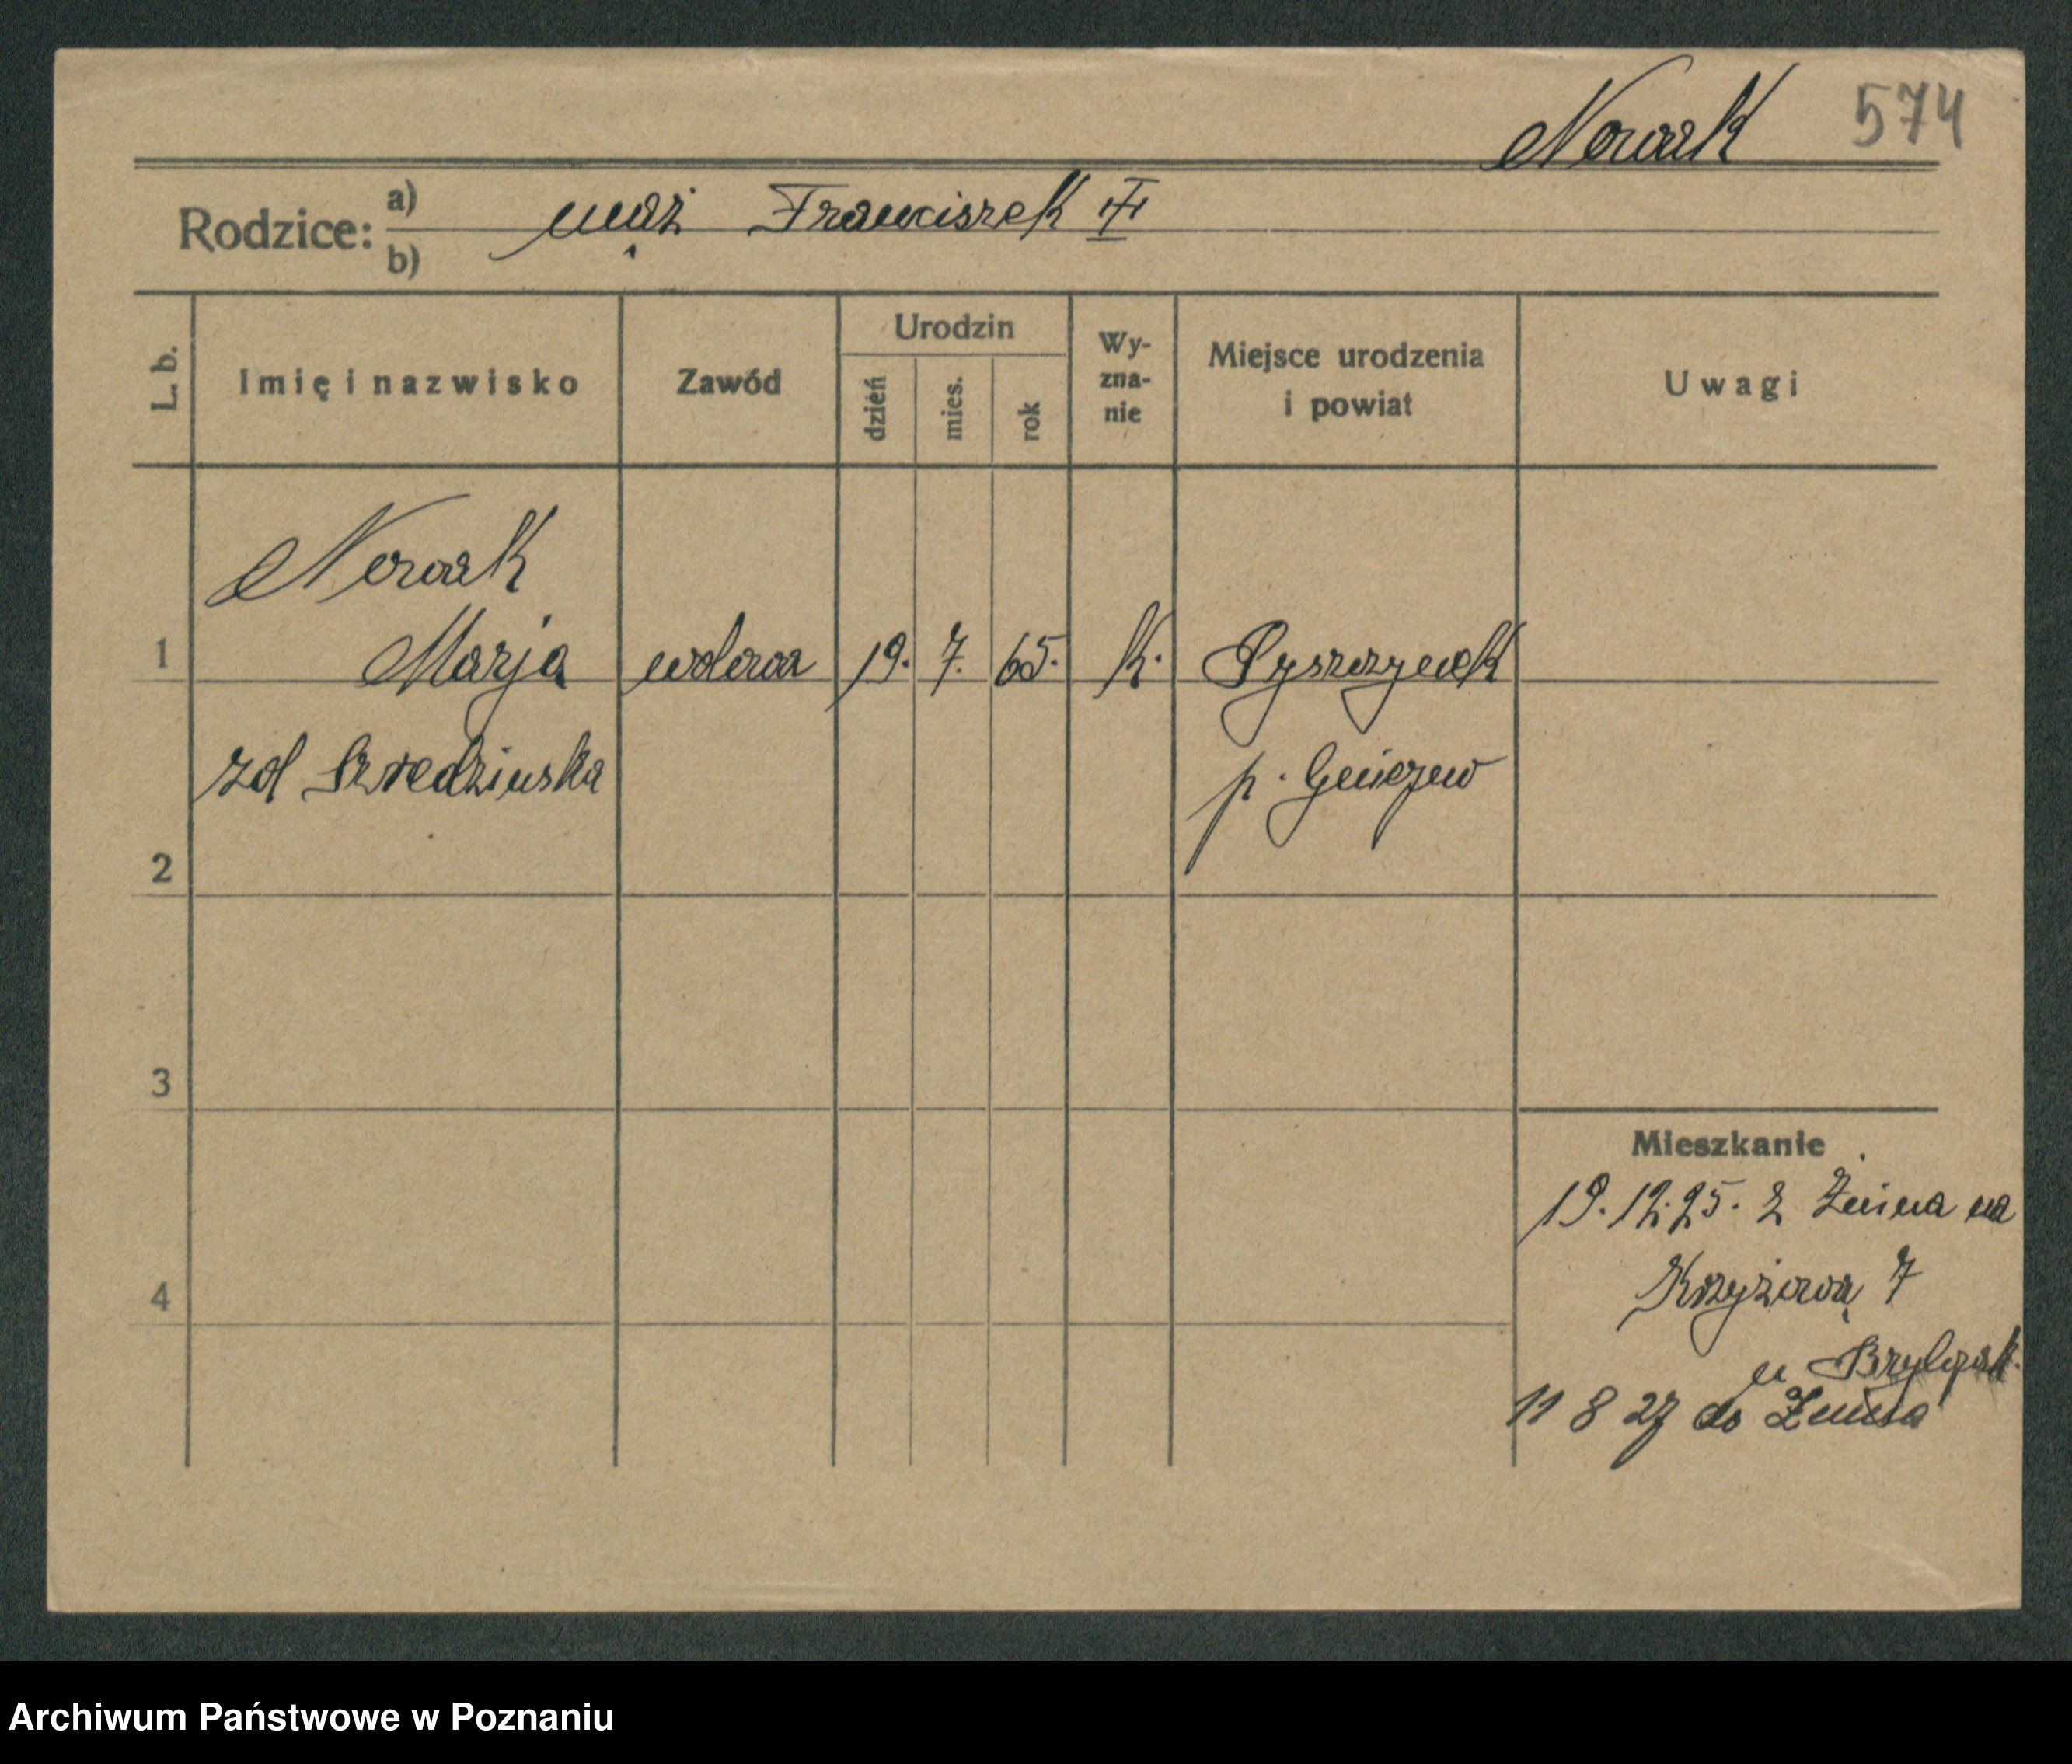 Nowak 574
Rodzice: a) mąż Franciszek
b)
L. b. Imię i nazwisko Zawód Urodzin dzień mies. rok Wy-zna-nie Miejsce urodzenia i powiat Uwagi
Nowak
1 Marja wdowa 19. 7. 65. K. Pyszczynek
zd Szredzinska p.
2
3
Mieszkanie
19.12.25. z Żnina na
4 Krzyżową 7
u
11 8 27 do Żnina
Archiwum Państwowe w Poznaniu